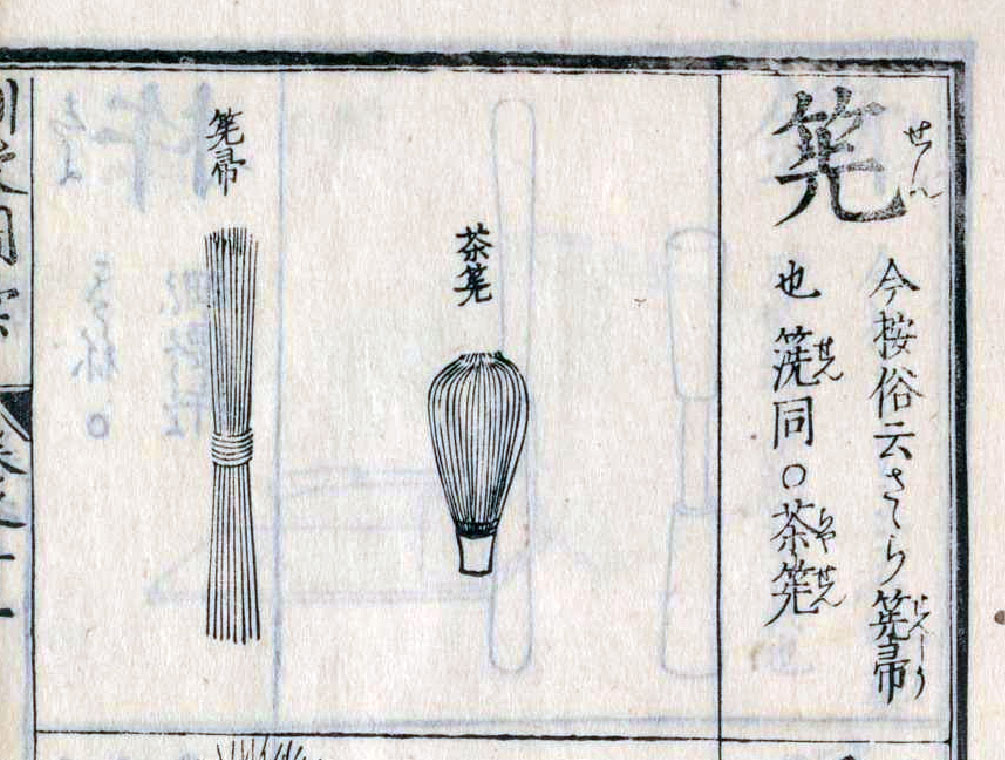 筅
せん
今按俗云さゝら筅帚
也箲同○茶筅
せん
ちやせん
茶筅
筅帚